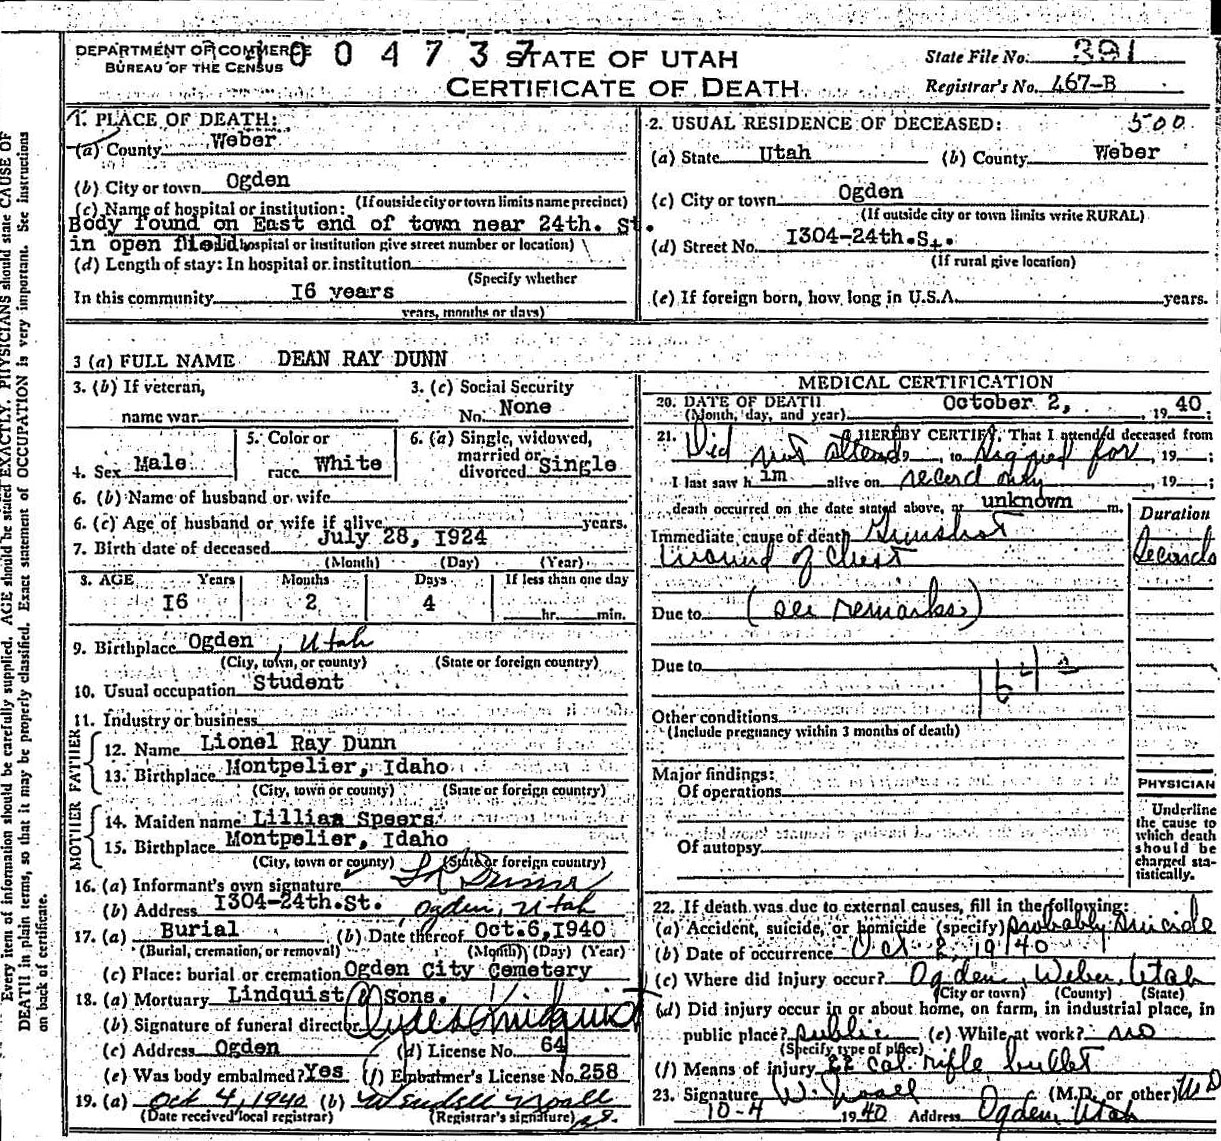 DEPARTMENT OF COMMERCE
BUREAU OF THE CENSUS
004737
STATE OF UTAH
CERTIFICATE OF DEATH
State File No. 391
Registrar's No. 467-B
1. PLACE OF DEATH:
(a) County Weber
(b) City or town Ogden
(If outside city or town limits name precinct)
(c) Name of hospital or institution:
Body found on East end of town near 24th. St.
in open field hospital or institution give street number or location)
(d) Length of stay: In hospital or institution
(Specify whether
In this community I6 years
years, months or days)
2. USUAL RESIDENCE OF DECEASED: 500
(a) State Utah (b) County Weber
(c) City or town Ogden
(If outside city or town limits write RURAL)
(d) Street No. I304-24th.St.
(If rural give location)
(e) If foreign born, how long in U.S.A. years.
3 (a) FULL NAME DEAN RAY DUNN
3. (b) If veteran,
name war
3. (c) Social Security
No. None
4. Sex Male
5. Color or
race White
6. (a) Single, widowed,
married or
divorced Single
6. (b) Name of husband or wife
6. (c) Age of husband or wife if alive years.
7. Birth date of deceased July 28, I924
(Month) (Day) (Year)
8. AGE Years Months Days If less than one day
I6 2 4 hr. min.
9. Birthplace Ogden, Utah
(City, town, or county) (State or foreign country)
10. Usual occupation Student
11. Industry or business
FATHER
12. Name Lionel Ray Dunn
13. Birthplace Montpelier, Idaho
(City, town or county) (State or foreign country)
MOTHER
14. Maiden name Lillian Speers
15. Birthplace Montpelier, Idaho
(City, town or county) (State or foreign country)
16. (a) Informant's own signature L R Dunn
(b) Address I304-24th.St. Ogden, Utah
17. (a) Burial (b) Date thereof Oct.6,I940
(Burial, cremation, or removal) (Month) (Day) (Year)
(c) Place: burial or cremation Ogden City Cemetery
18. (a) Mortuary Lindquist & Sons.
(b) Signature of funeral director Clyde Lindquist
(c) Address Ogden (d) License No. 64
(e) Was body embalmed? Yes (f) Embalmer's License No. 258
19. (a) Oct 4, 1940 (b) Wendell Noall
(Date received local registrar) (Registrar's signature)
MEDICAL CERTIFICATION
20. DATE OF DEATH
(Month, day, and year) October 2, 19 40;
21. I HEREBY CERTIFY, That I attended deceased from
Did not attend, to signed for, 19 ;
I last saw h im alive on record only, 19 ;
death occurred on the date stated above, at unknown m.
Duration
Immediate cause of death Gunshot
wound of chest Seconds
Due to (see remarks)
Due to
164 a
Other conditions
(Include pregnancy within 3 months of death)
Major findings:
Of operations
Of autopsy
PHYSICIAN
Underline
the cause to
which death
should be
charged sta-
tistically.
22. If death was due to external causes, fill in the following:
(a) Accident, suicide, or homicide (specify) probably suicide
(b) Date of occurrence Oct 2, 1940
(c) Where did injury occur? Ogden, Weber, Utah
(City or town) (County) (State)
(d) Did injury occur in or about home, on farm, in industrial place, in
public place? public (e) While at work? no
(Specify type of place)
(f) Means of injury 22 cal. rifle bullet
23. Signature W. Noall (M.D. or other) MD
10-4 19 40 Address Ogden, Utah
Every item of information should be carefully supplied. AGE should be stated EXACTLY. PHYSICIANS should state CAUSE OF
DEATH in plain terms, so that it may be properly classified. Exact statement of OCCUPATION is very important. See instructions
on back of certificate.